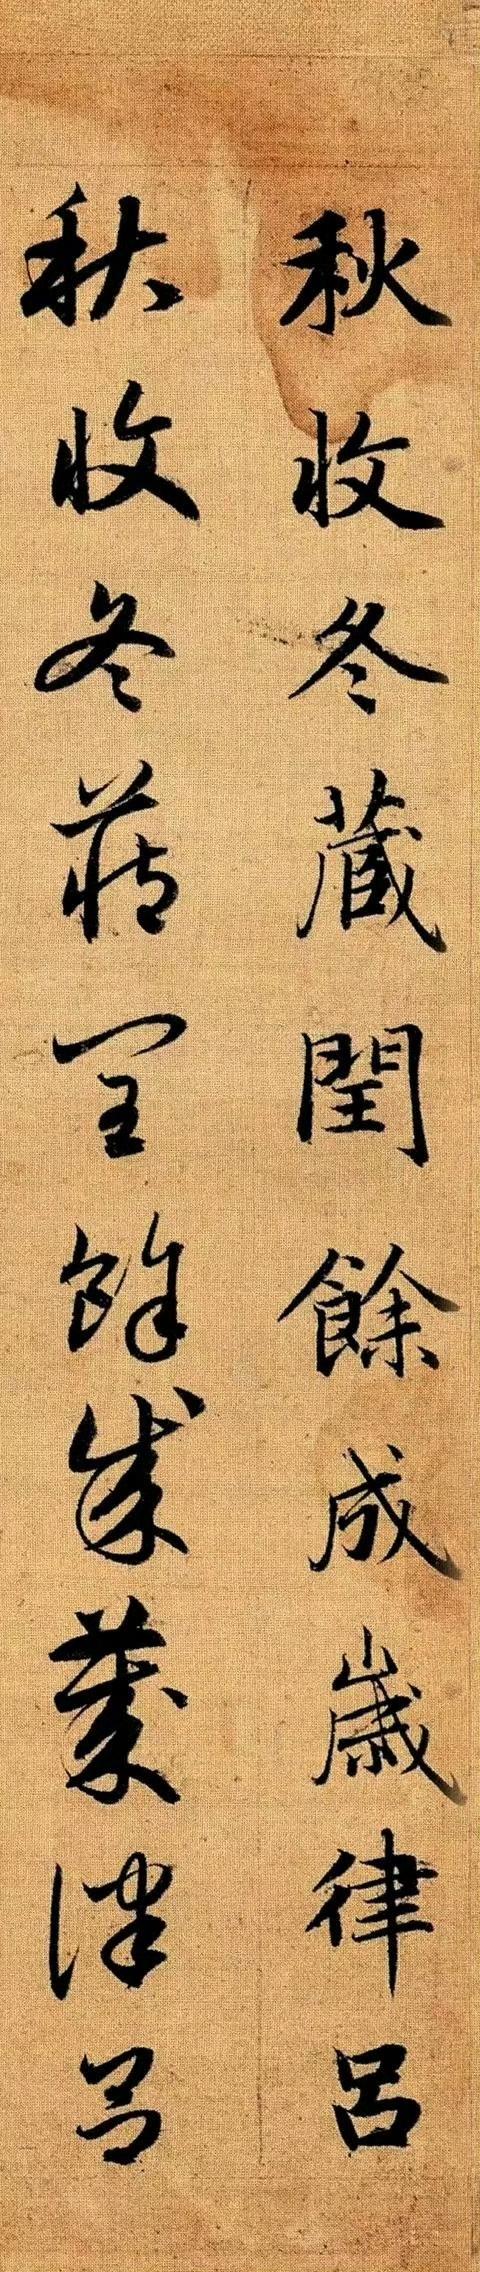 秋收冬蔵閏餘成歲律呂
秋收冬藏閏餘成歲律呂